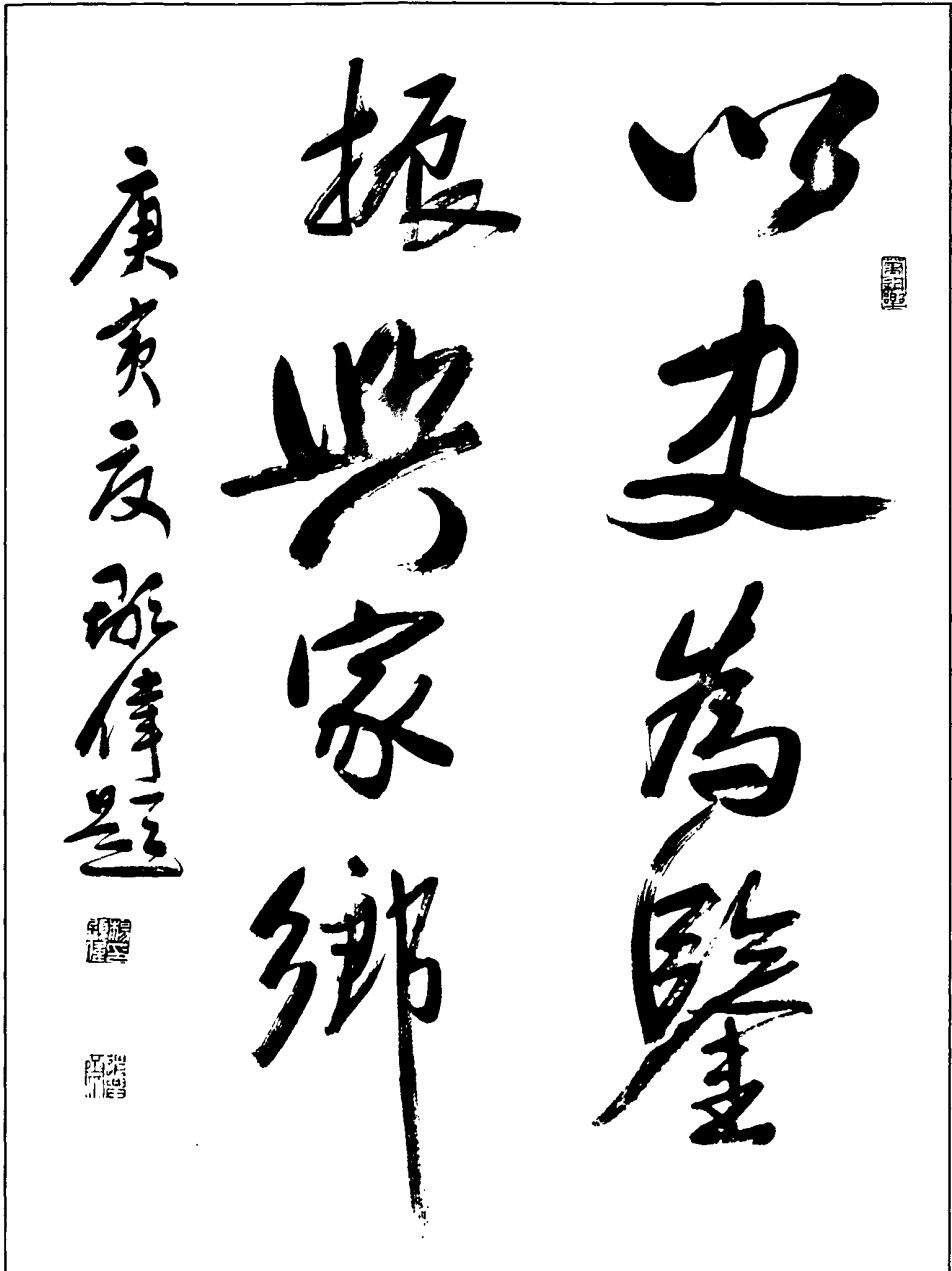 以史為鑒
振興家鄉
庚寅夏 瑞偉題